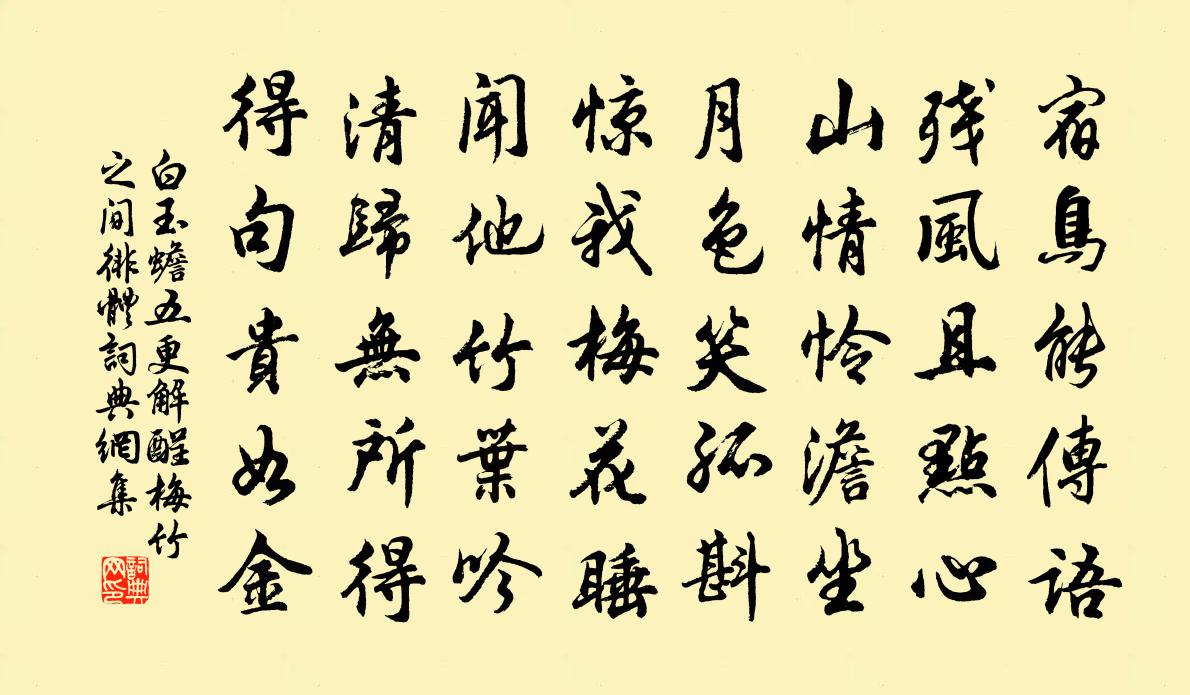 宿鳥能傳語
殘風且點心
山情怜澹坐
月色笑孤斟
惊我梅花睡
聞他竹葉吟
清歸無所得
得句貴如金
白玉蟾五更解酲梅竹
之間徘體詞典網集
詞典
网印